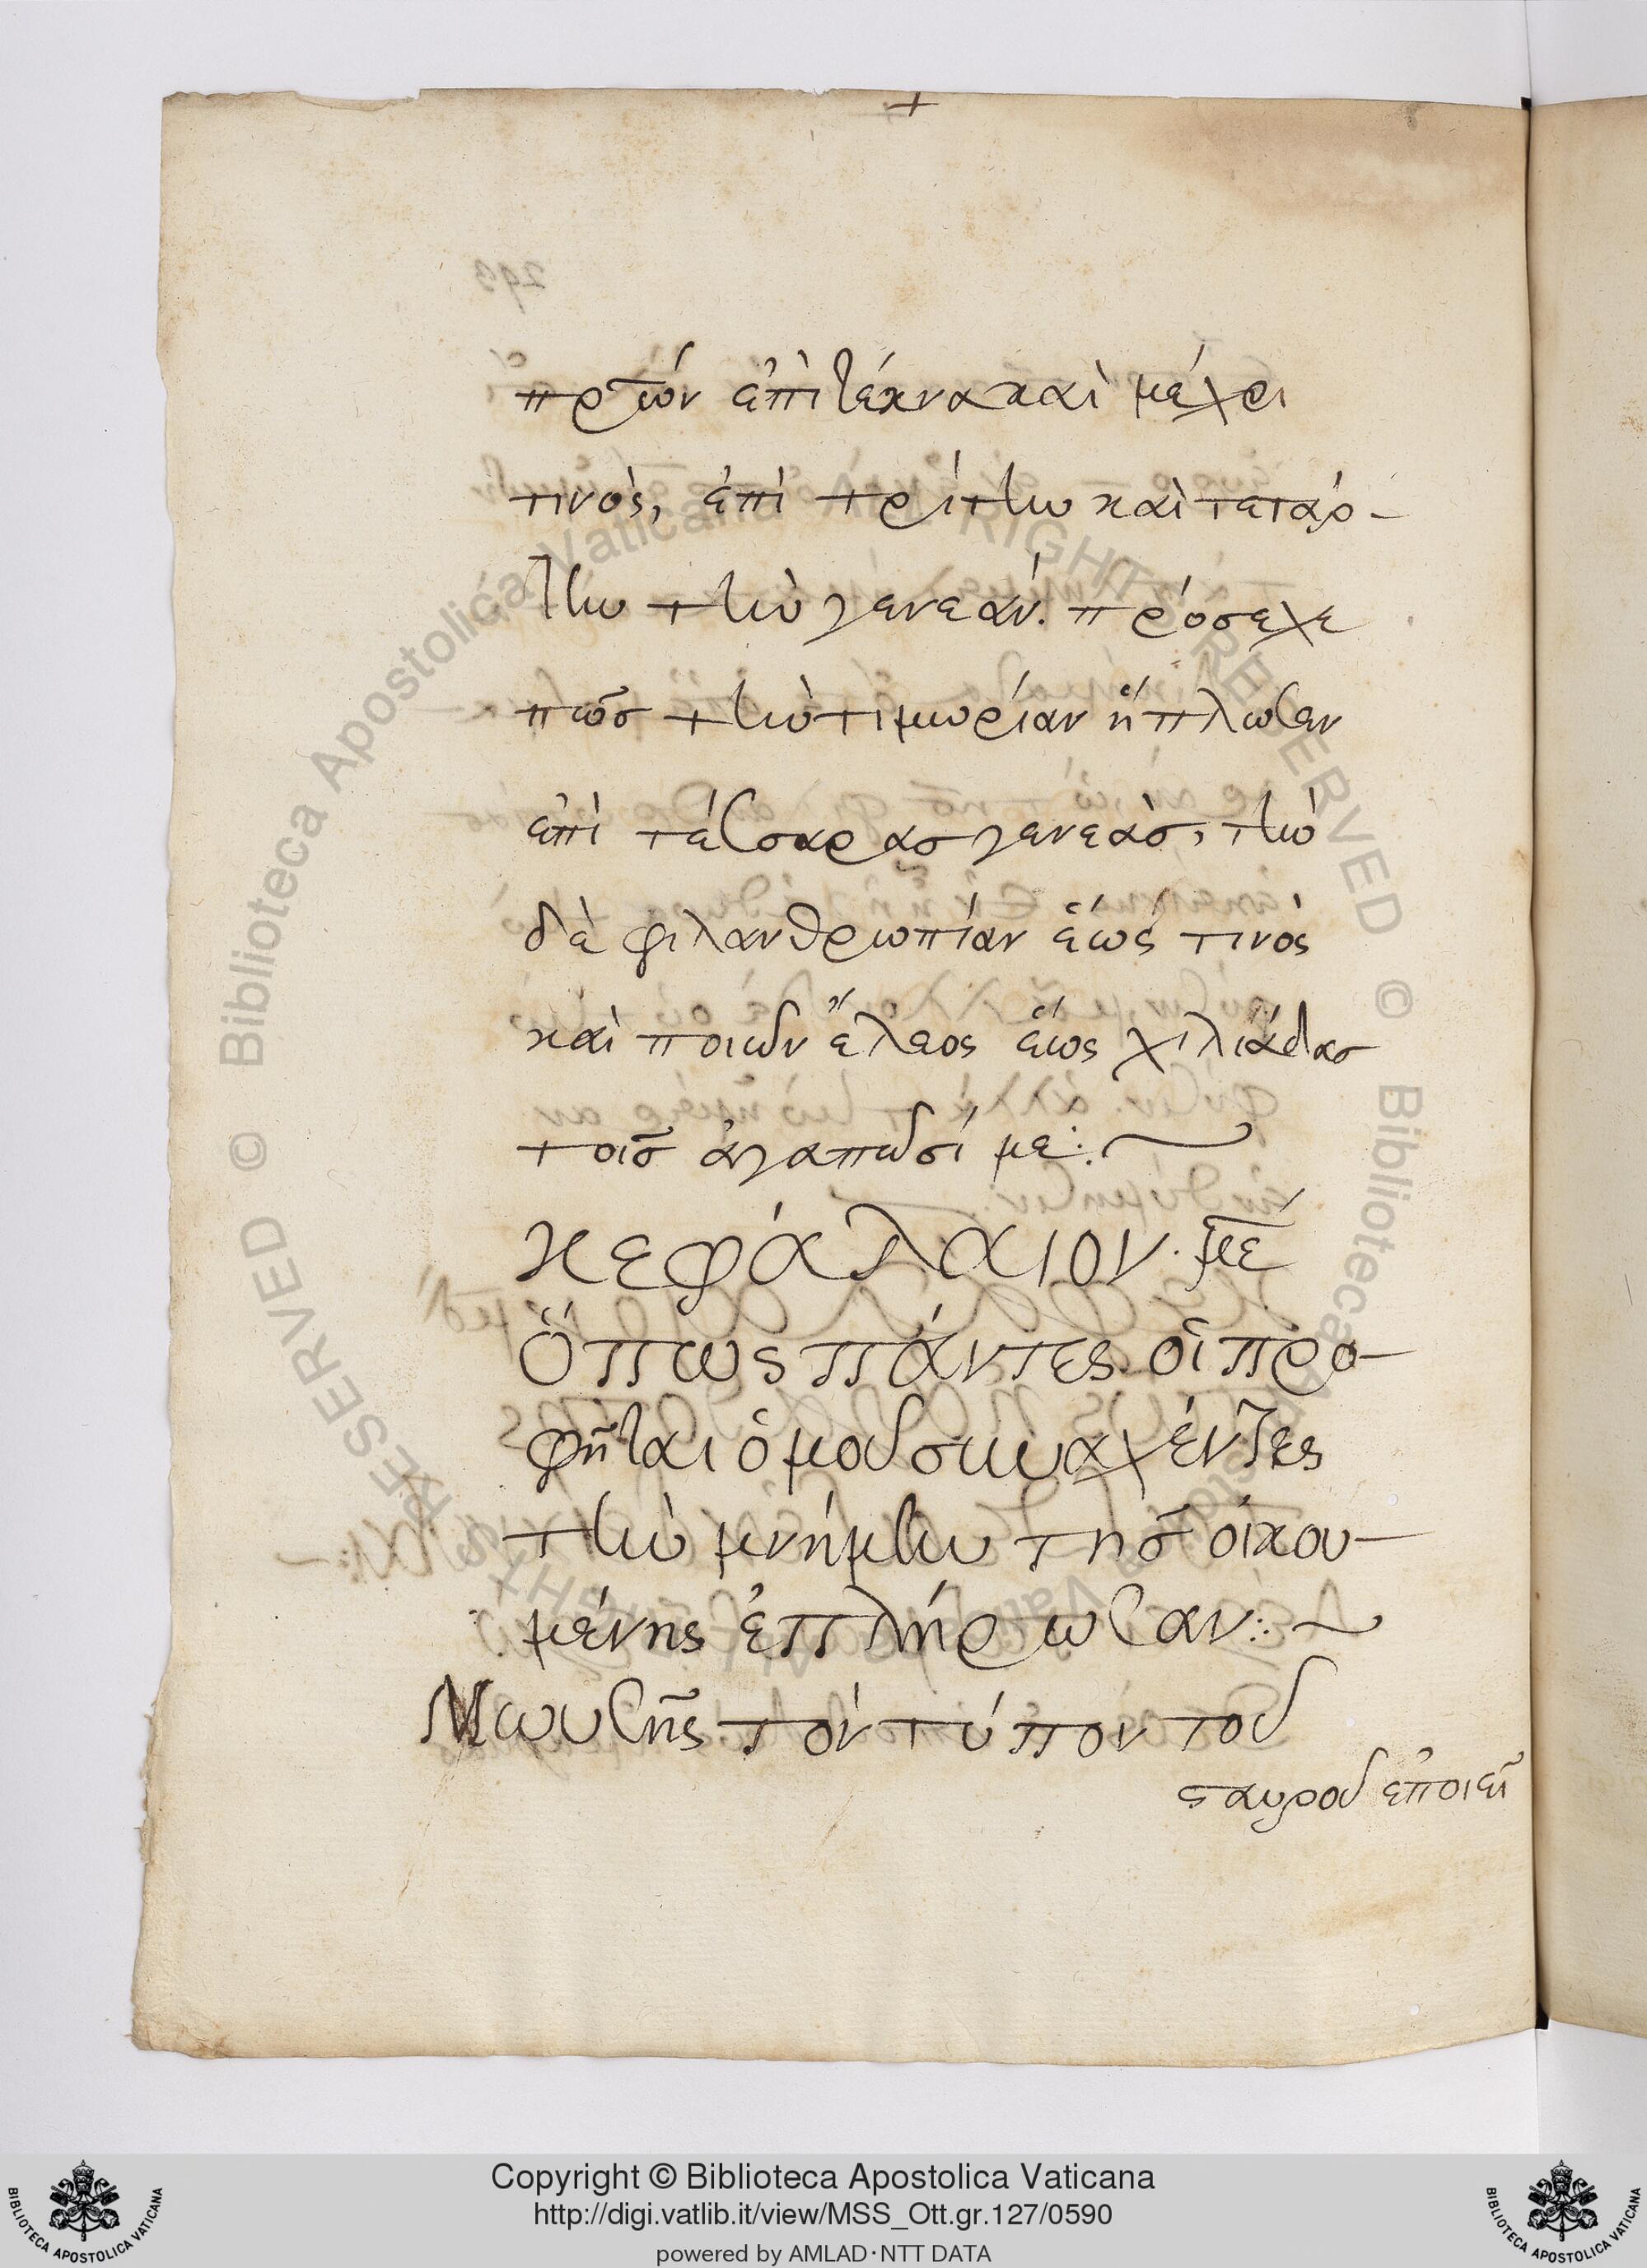 +
πρ̅ων ἐπὶ τέκνα καὶ μέχρι
τινὸς, ἐπὶ τρίτην καὶ τετάρ-
την τὴν γενεάν. πρόσεχε
πῶσ τὴν τιμωρίαν ἥπλωσεν
ἐπὶ τέσσαρασ γενεὰσ, τὴν
δὲ φιλανθρωπίαν ἕως τινός
καὶ ποιῶν ἔλεος ἕως χιλιάδασ
τοῖσ ἀγαπῶσί με:
κεφάλαιον. με̅
Ὅπως πάντες οἱ προ-
φῆται ὁμοῦ συναχθέντες
τὴν μνήμην τῆσ οἰκου-
μένης ἐπλήρωσαν:~
Μωυσῆς τὸν τύπον τοῦ
σταυροῦ ἐποιεῖ
Copyright © Biblioteca Apostolica Vaticana
http://digi.vatlib.it/view/MSS_Ott.gr.127/0590
powered by AMLAD·NTT DATA
BIBLIOTECA APOSTOLICA VATICANA
BIBLIOTECA APOSTOLICA VATICANA